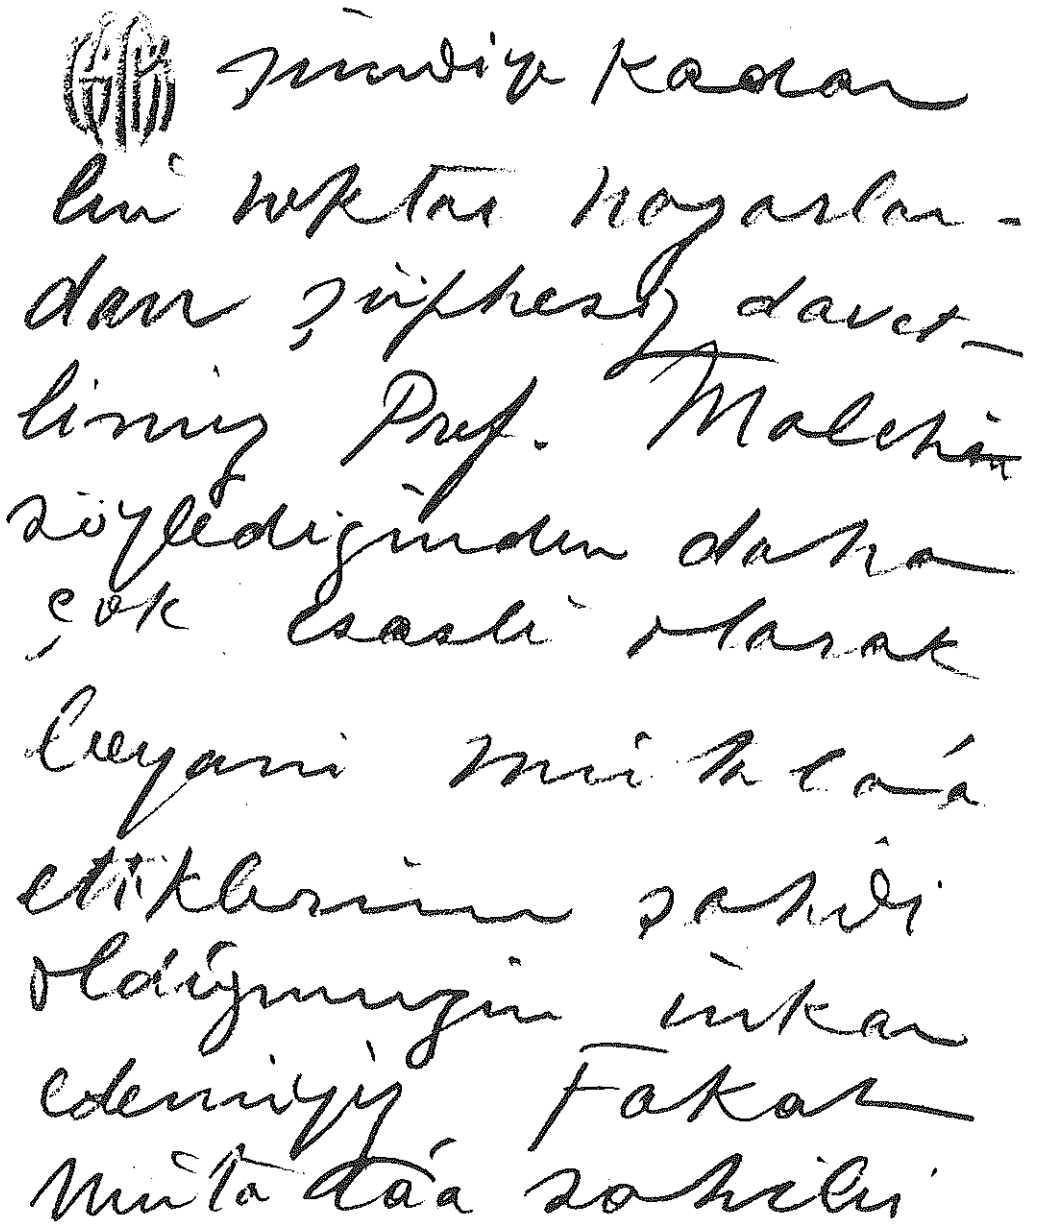 şimdiye kadar
bu noktai nazarlar-
dan şüphesiz davet-
limiz Prof. Malche'ın
söylediğinden daha
çok esaslı olarak
beyanı mütalaa
ettiklerinin şahidi
olduğumuzu inkâr
edemeyiz Fakat
mütalâa sahibi